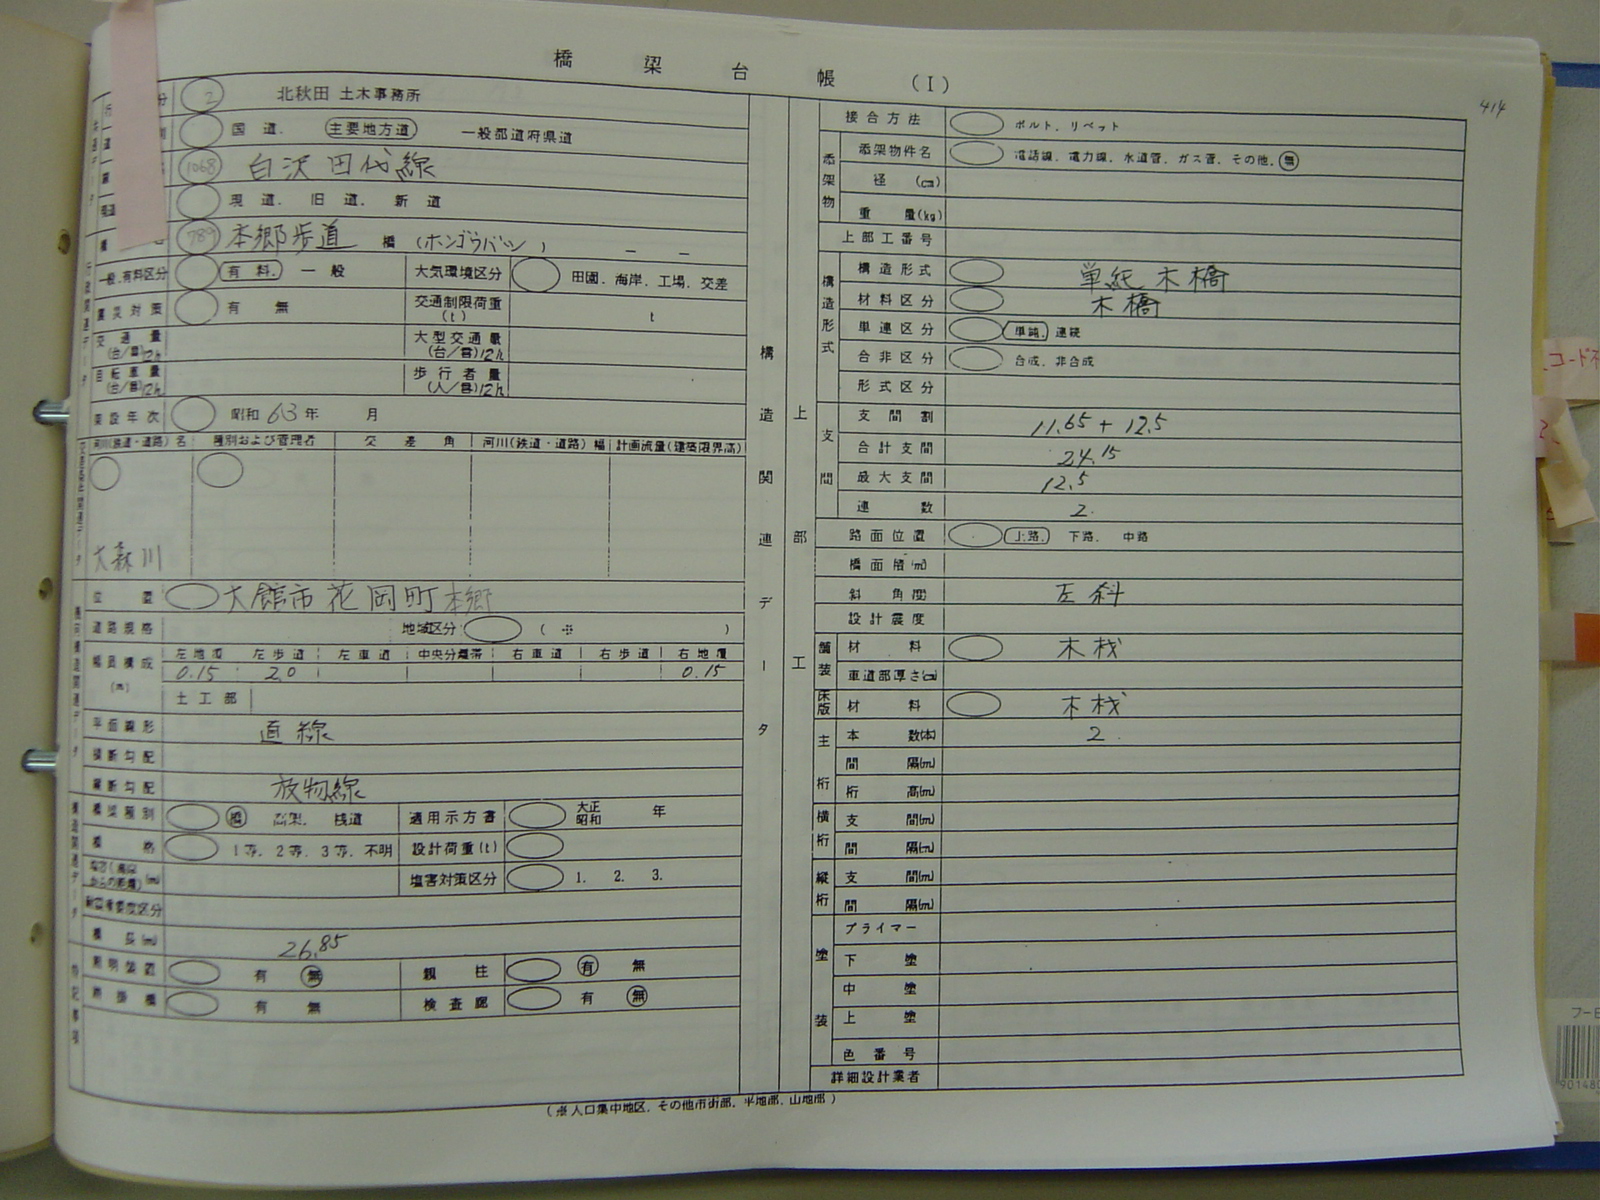 橋梁台帳 (I)
414
2 北秋田 土木事務所
国道. 主要地方道 一般都道府県道
1068 白沢田代線
現道. 旧道. 新道
789 本郷歩道 橋 (ホンゴウバシ) — —
一般.有料区分 有料. 一般 大気環境区分 田園. 海岸. 工場. 交差
震災対策 有 無 交通制限荷重(t) t
交通量(台/昼)12h 大型交通量(台/昼)12h
自転車量(台/昼)12h 歩行者量(人/昼)12h
架設年次 昭和63年 月
河川(鉄道・道路)名 種別および管理者 交差角 河川(鉄道・道路)幅 計画流量(建築限界高)
大森川
位置 大館市花岡町本郷
道路規格 地域区分 (※ )
幅員構成(m) 左地覆 左歩道 左車道 中央分離帯 右車道 右歩道 右地覆
0.15 2.0 0.15
土工部
平面線形 直線
横断勾配
縦断勾配 放物線
橋梁種別 橋 高架. 桟道 適用示方書 大正 昭和 年
橋格 1等. 2等. 3等. 不明 設計荷重(t)
塩害対策区分 1. 2. 3.
橋長(m) 26.85
照明装置 有 無 親柱 有 無
添掛橋 有 無 検査廊 有 無
特記事項
構造関連データ
上部工
接合方法 ボルト. リベット
添架物 添架物件名 電話線. 電力線. 水道管. ガス管. その他. 無
径 (cm)
重量(kg)
上部工番号
構造形式 構造形式 単純木橋
材料区分 木橋
単連区分 単純. 連続
合非区分 合成. 非合成
形式区分
支間 支間割 11.65 + 12.5
合計支間 24.15
最大支間 12.5
連数 2.
路面位置 上路. 下路. 中路
橋面積(㎡)
斜角度 左斜
設計震度
舗装 材料 木材
車道部厚さ(cm)
床版 材料 木材
主桁 本数(本) 2.
間隔(m)
桁高(m)
横桁 支間(m)
間隔(m)
縦桁 支間(m)
間隔(m)
塗装 プライマー
下塗
中塗
上塗
色番号
詳細設計業者
(※人口集中地区. その他市街部. 平地部. 山地部)